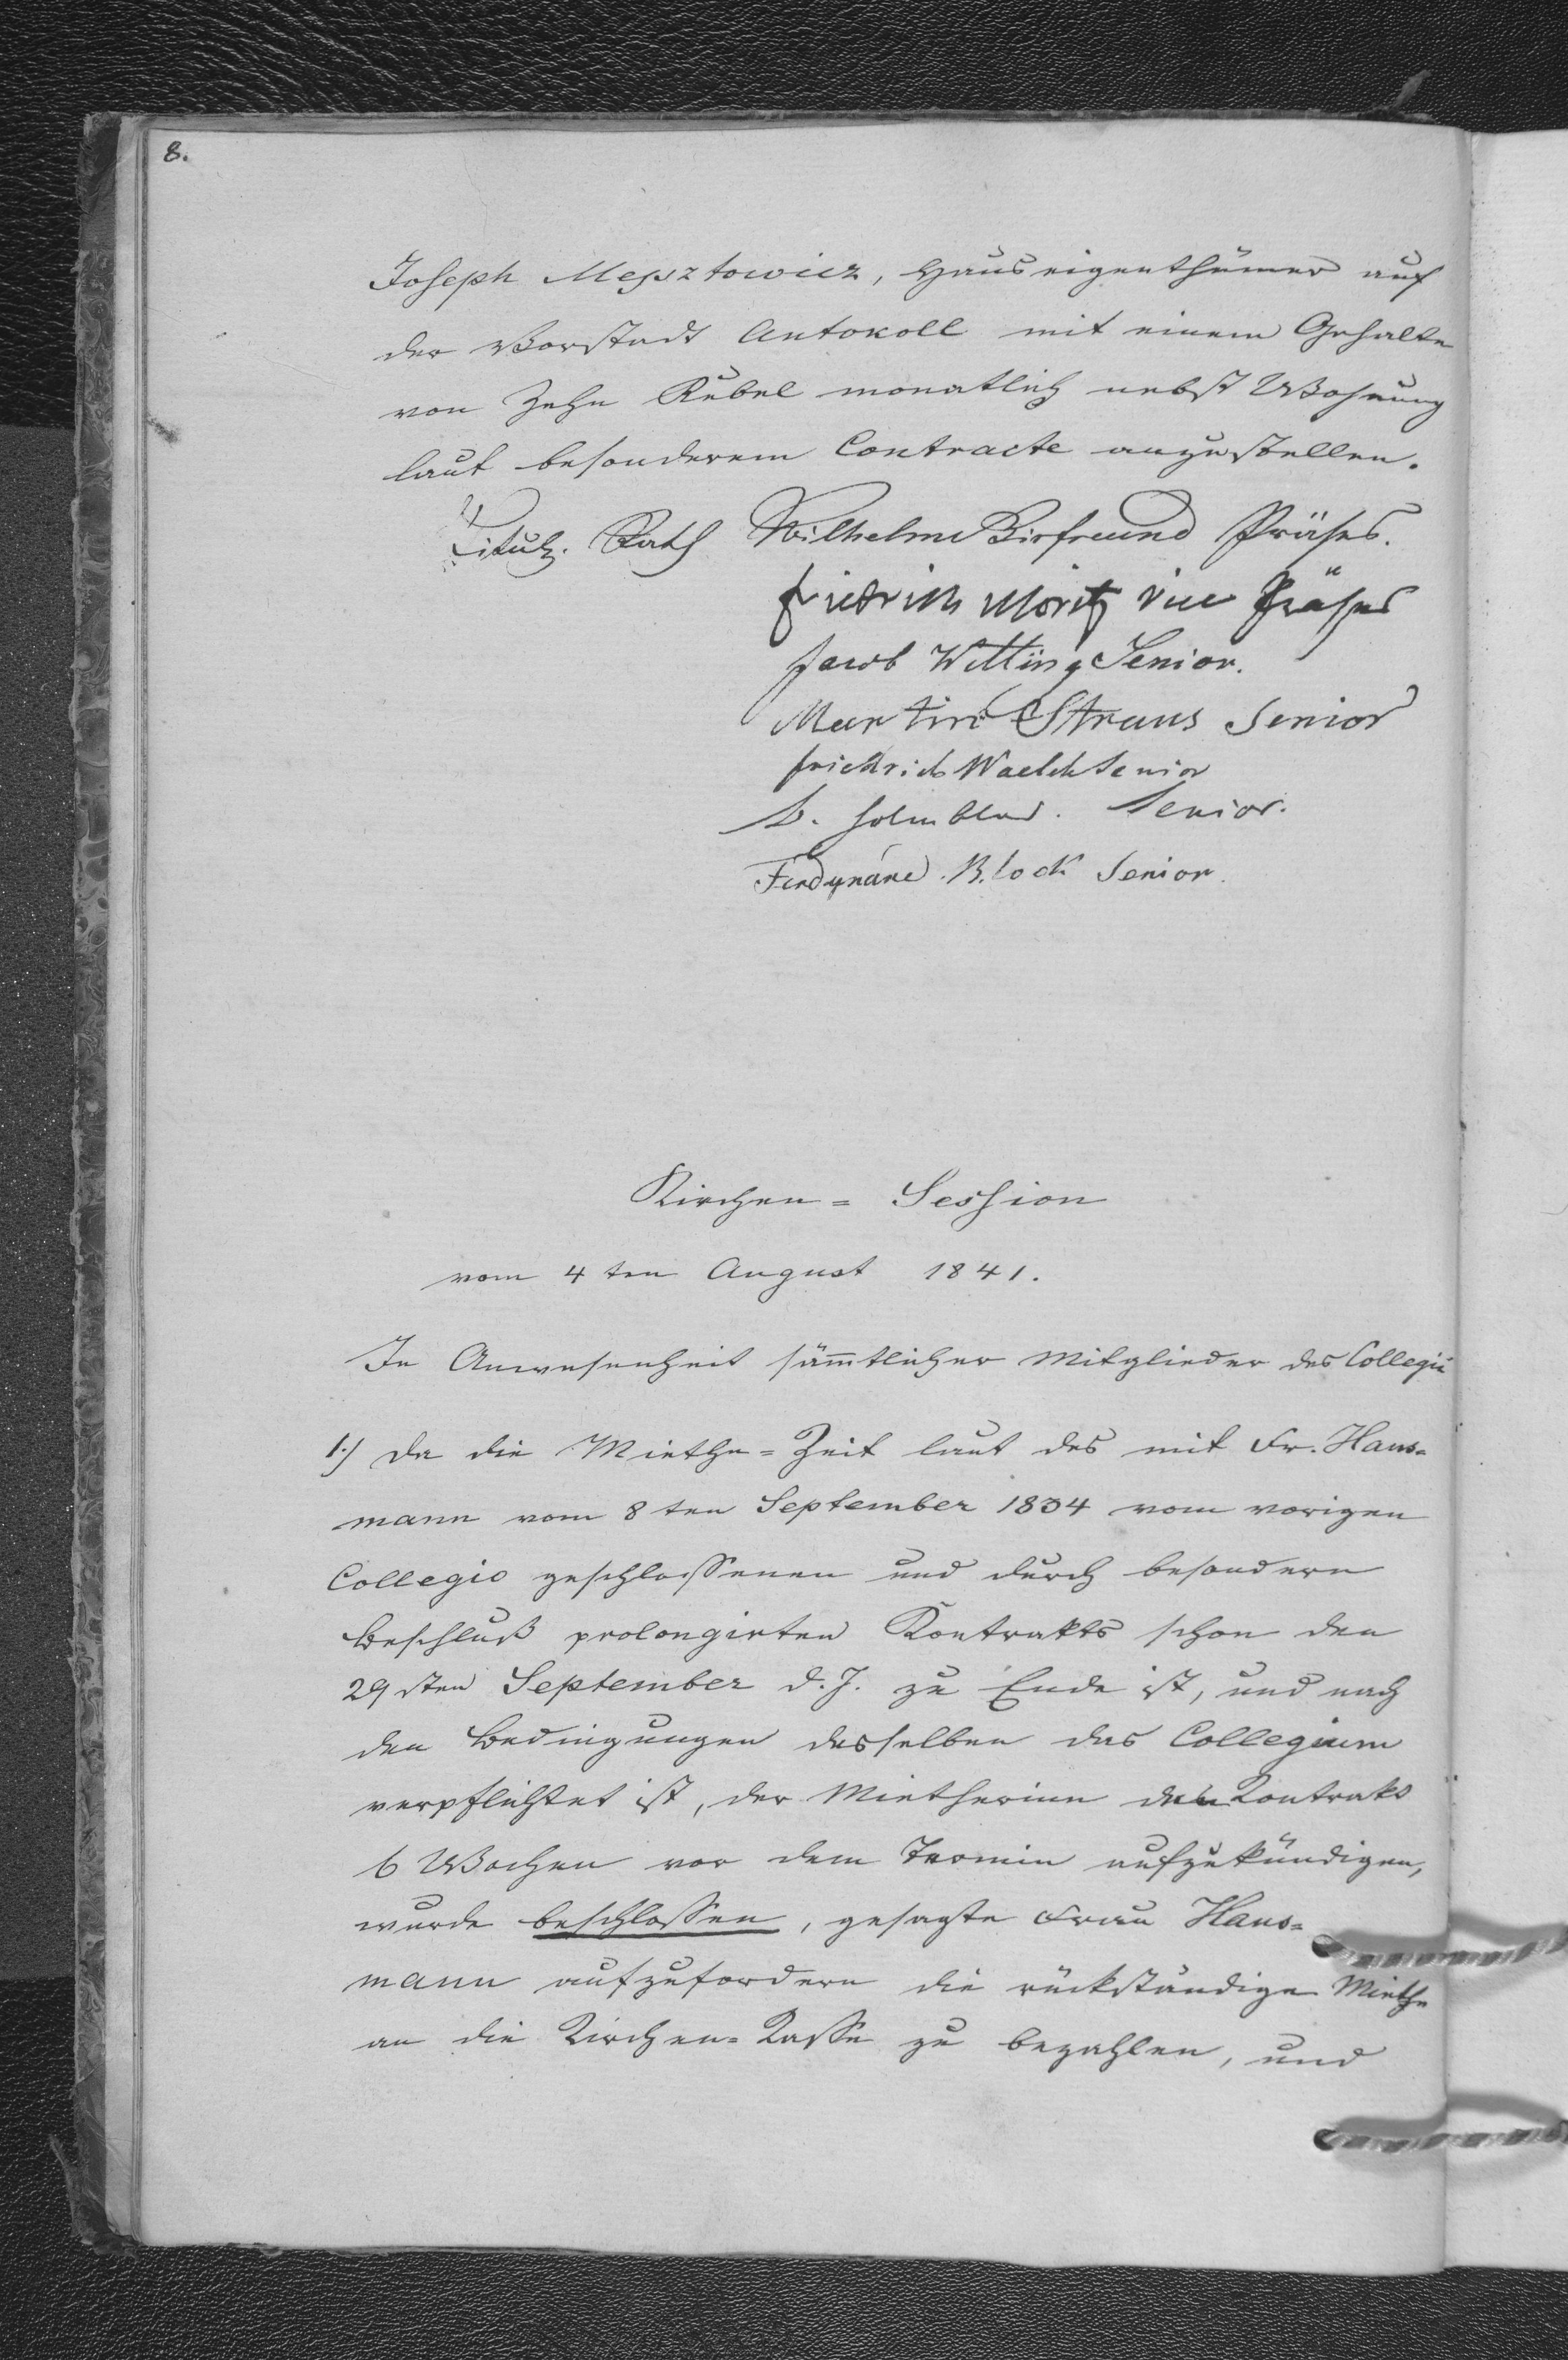 8.
Joseph Mejsztowicz, Hauseigenthümer auf
der Vorstadt Antokoll mit einem Gehalte
von Zehn Rubel monatlich nebst Wohnung
laut besonderem Contracte anzustellen.
Titulr. Rath Wilhelm Birfreund Präses.
Friedrich Moritz vice Präses
Jacob Witting Senior.
Martin Straus Senior
Friedrich Waelch Senior
Senior.
Ferdynand Block Senior.
Kirchen = Session
vom 4ten August 1841.
In Anwesenheit sämmtlicher Mitglieder des Collegii
1.) Da die Miethe=Zeit laut des mit Fr. Haus=
mann vom 8ten September 1834 vom vorigen
Collegio geschlossenen und durch besondern
Beschluß prolongirten Kontrakts schon den
29sten September d. J. zu Ende ist, und nach
den Bedingungen desselben das Collegium
verpflichtet ist, der Mietherinn den Kontrakt
6 Wochen vor dem Termin aufzukündigen,
wurde beschlossen, gesagte Frau Haus=
mann aufzufordern die rückständige Miethe
an die Kirchen=Kasse zu bezahlen, und